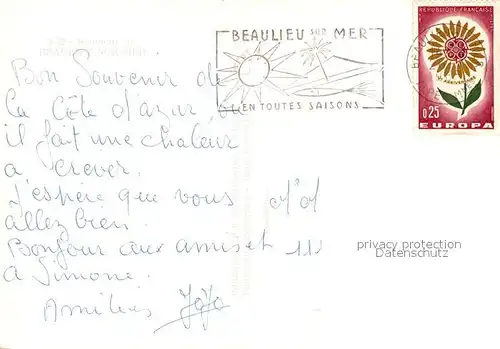 BEAULIEU SUR MER
EN TOUTES SAISONS
REPUBLIQUE FRANÇAISE
0,25
EUROPA
Bon Souvenir de
la Côte d'azur, ou
il fait une chaleur
a crever.
J'espère que vous
allez bien.
Bonjour aux amis et
a Simone.
Amitiés Jojo
privacy protection
Datenschutz